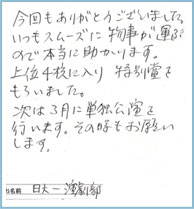 今回もありがとうございました。
いつもスムーズに物事が運ぶ
ので本当に助かります。
上位4校に入り 特別賞を
もらいました。
次は3月に単独公演を
行います。その時もお願い
します。
り名前 日大一演劇部